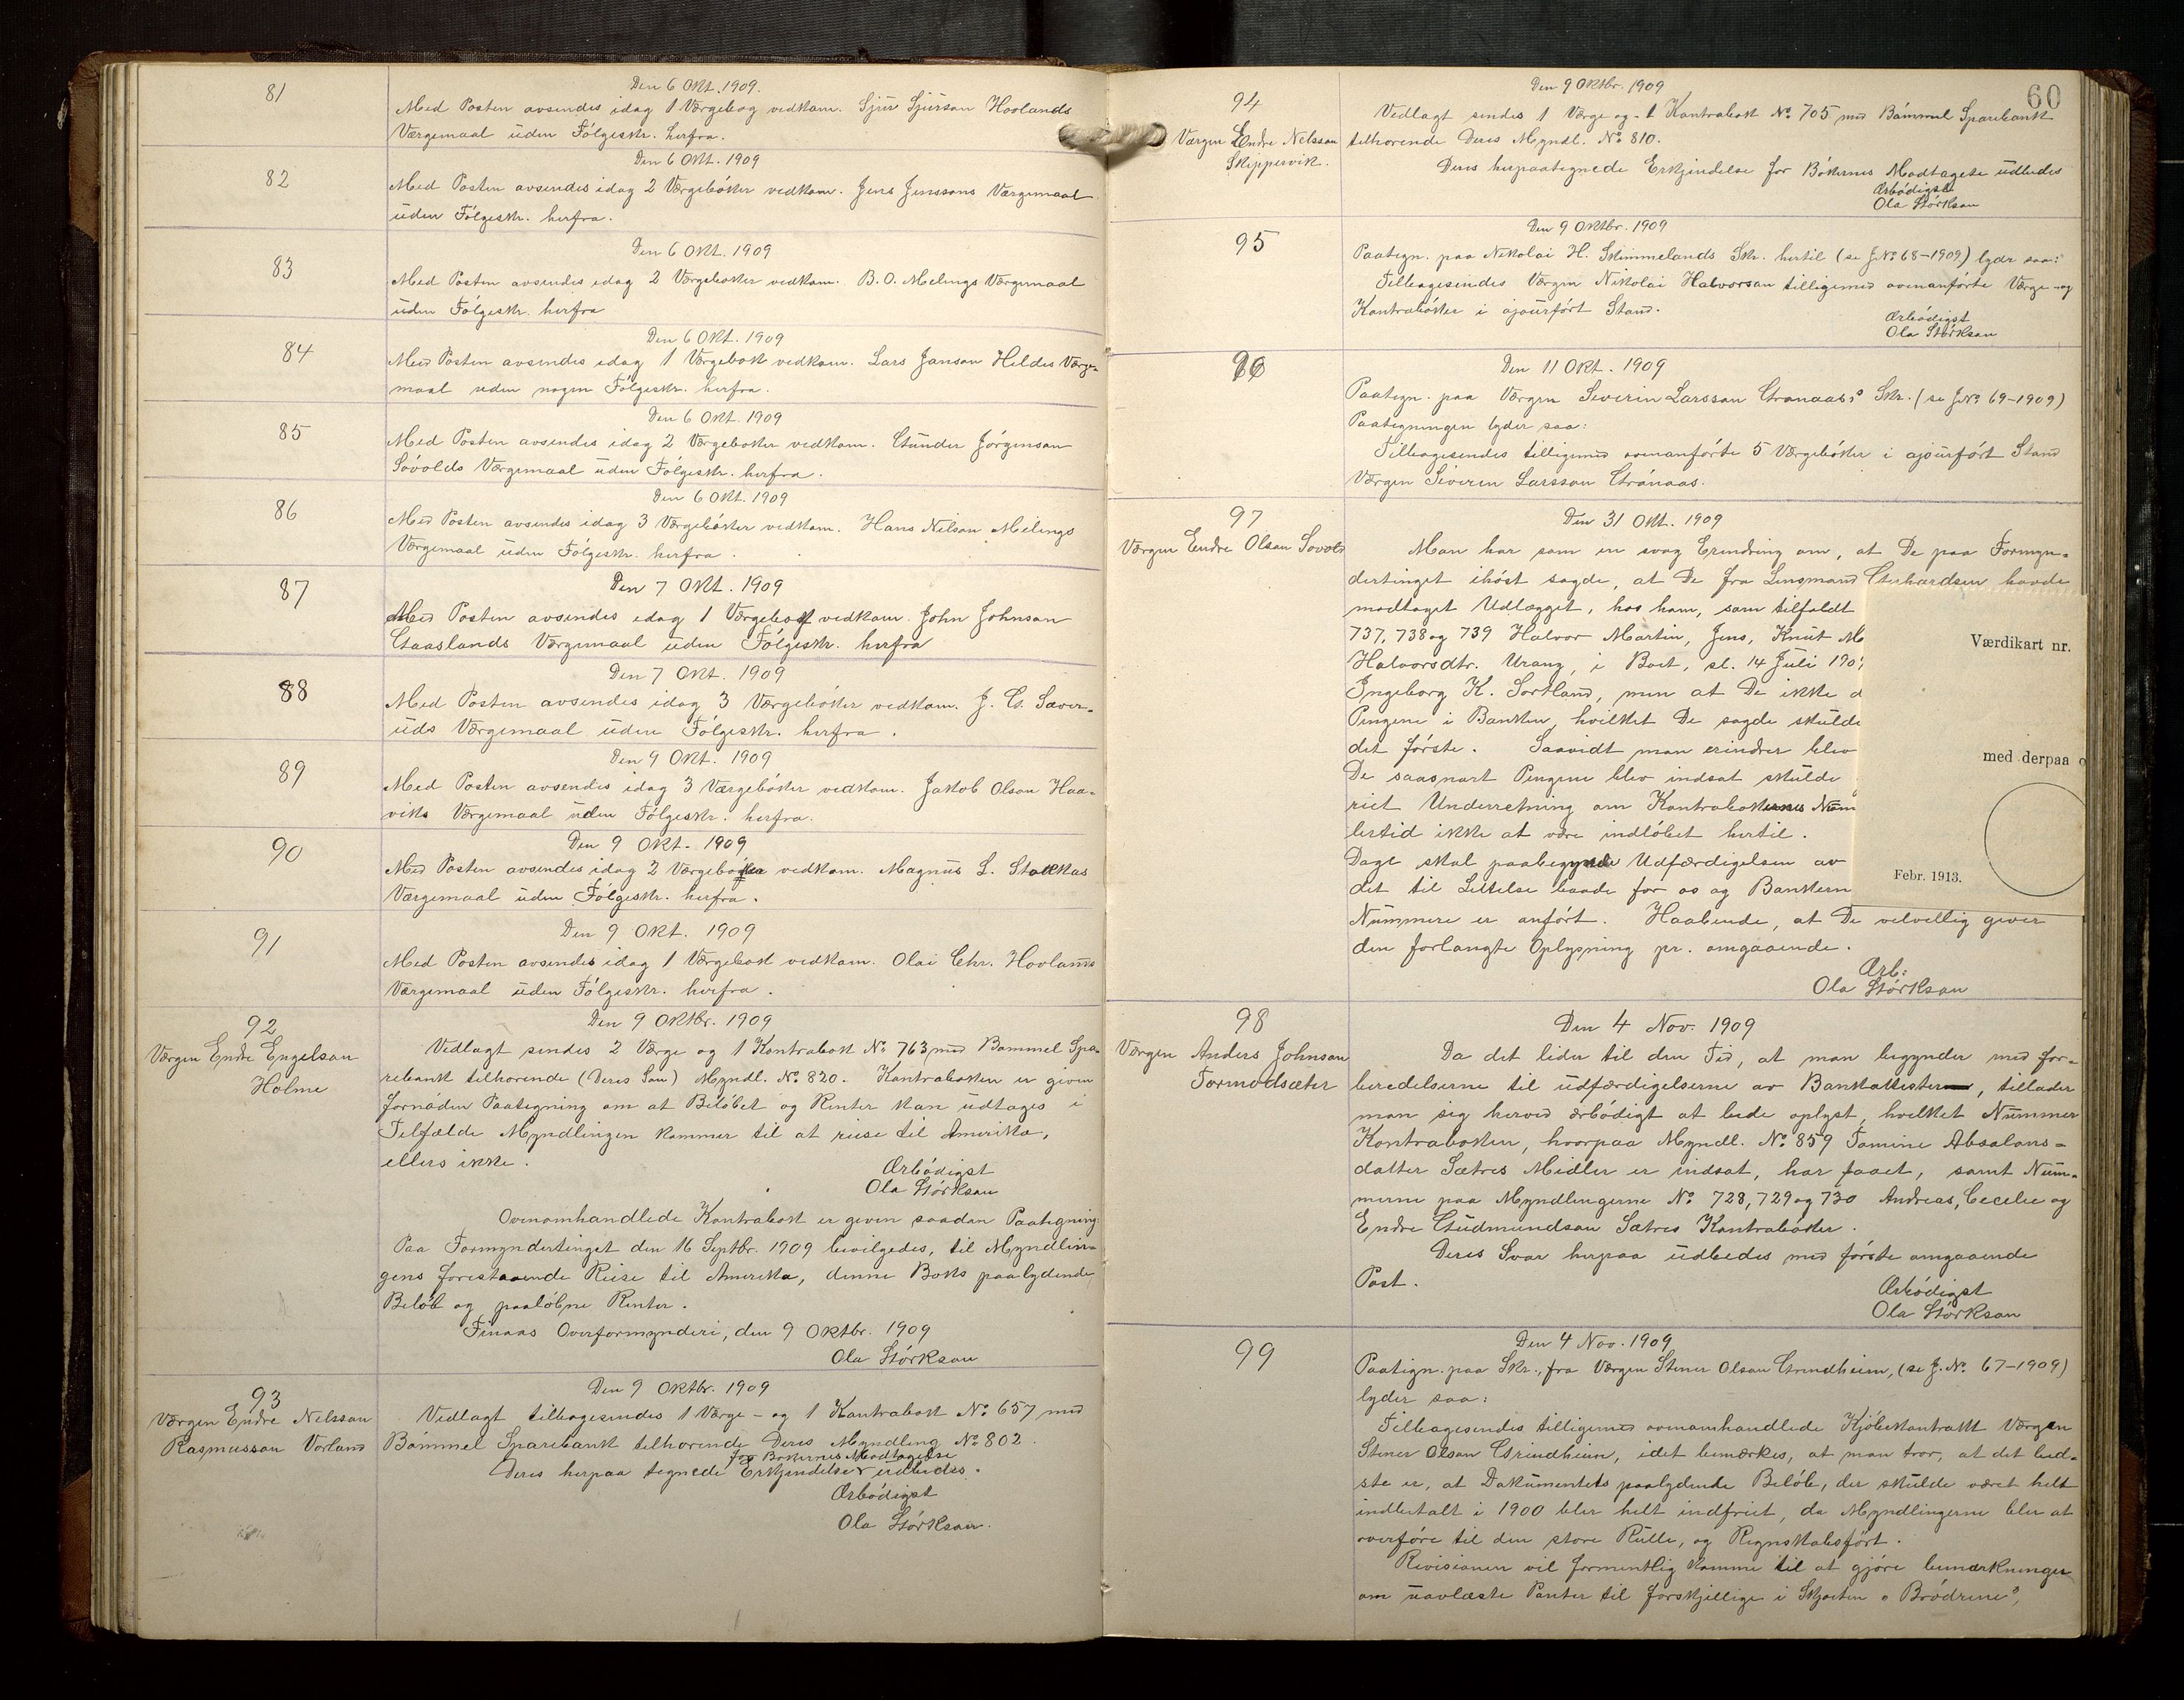 81
Den 6 Okt. 1909.
Med Posten avsendes idag 1 Værgebog vedkom. Sjur Sjurson Hovlands
Værgemaal uden Følgeskr. herfra.
82
Den 6 Okt. 1909
Med Posten avsendes idag 2 Værgebøker vedkom. Jens Jenssons Værgemaal
uden Følgeskr. herfra.
83
Den 6 Okt. 1909
Med Posten avsendes idag 2 Værgebøker vedkom. B. O. Melings Værgemaal
uden Følgeskr. herfra
84
Den 6 Okt. 1909
Med Posten avsendes idag 1 Værgebok vedkom. Lars Janson Heldes Værge-
maal uden nogen Følgeskr. herfra.
85
Den 6 Okt. 1909
Med Posten avsendes idag 2 Værgebøker vedkom. Gunder Jørgenson
Søvolds Værgemaal uden Følgeskr. herfra.
86
Den 6 Okt. 1909
Med Posten avsendes idag 3 Værgebøker vedkom. Hans Nilson Melings
Værgemaal uden Følgeskr. herfra.
87
Den 7 Okt. 1909
Med Posten avsendes idag 1 Værgebok vedkom. John Johnson
Gaaslands Værgemaal uden Følgeskr. herfra
88
Den 7 Okt. 1909
Med Posten avsendes idag 3 Værgebøker vedkom. J. G. Sæver-
uds Værgemaal uden Følgeskr. herfra.
89
Den 9 Okt. 1909
Med Posten avsendes idag 3 Værgebøker vedkom. Jakob Olson Haa-
viks Værgemaal uden Følgeskr. herfra.
90
Den 9 Okt. 1909
Med Posten avsendes idag 2 Værgebøker vedkom. Magnus L. Stokkas
Værgemaal uden Følgeskr. herfra.
91
Den 9 Okt. 1909
Med Posten avsendes idag 1 Værgebok vedkom. Olai Chr. Hovlands
Værgemaal uden Følgeskr. herfra.
92
Værgen Endre Engelson
Holme
Den 9 Oktbr. 1909
Vedlagt sendes 2 Værge og 1 Kontrabok No. 763 med Bømmel Spa-
rebank tilhørende (Deres Søn) Myndl. No. 820. Kontraboken er given
fornøden Paategning om at Beløbet og Renter kan udtages i
Tilfælde Myndlingen kommer til at reise til Amerika,
ellers ikke.
Ærbødigst
Ola Størkson
Ovenomhandlede Kontrabok er given saadan Paategning:
Paa Formyndertinget den 16 Septbr. 1909 bevilgedes, til Myndlin-
gens forestaaende Reise til Amerika, denne Boks paalydende
Beløb og paaløbne Renter.
Finaas Overformynderi, den 9 Oktbr. 1909
Ola Størkson
93
Værgen Endre Nelsson
Rasmusson Vorland
Den 9 Oktbr. 1909
Vedlagt tilbagesendes 1 Værge- og 1 Kontrabok No. 657 med
Bømmel Sparebank tilhørende Deres Myndling No. 802.
for Bøkernes Modtagelse
Deres herpaa tegnede Erkjendelse udbedes.
Ærbødigst
Ola Størkson.
60
94
Værgen Endre Nelsson
Skippervik.
Den 9 Oktbr. 1909
Vedlagt sendes 1 Værge og 1 Kontrabok No. 705 med Bømmel Sparebank
tilhørende Deres Myndl. No. 810.
Deres herpaategnede Erkjendelse for Bøkernes Modtagelse udbedes
Ærbødigst
Ola Størkson
95
Den 9 Oktbr. 1909
Paategn. paa Nikolai H. Skimmelands Skr. hertil (se J.No. 68-1909) lyder saa:
Tilbagesendes Værgen Nikolai Halvorson tilligemed ovenanførte Værge- og
Kontrabøker i ajourført Stand.
Ærbødigst
Ola Størkson
96
Den 11 Okt. 1909
Paategn. paa Værgen Severin Larsson Grønaas's Skr. (se J.No. 69-1909)
Paategningen lyder saa:
Tilbagesendes tilligemed ovenanførte 5 Værgebøker i ajourført Stand
Værgen Severin Larsson Grønaas.
97
Værgen Endre Olson Søvold
Den 31 Okt. 1909
Man har som en svag Erindring om, at De paa Formyn-
dertinget ihøst sagde, at De fra Lensmand Gerhardsen havde
modtaget Udlægget, hos ham, som tilfaldt
737, 738 og 739 Halvor Martin, Jens, Knut M
Halvorsdtr. Urang, i Boet, sl. 14 Juli 190
Ingeborg K. Sortland, men at De ikke
Pengene i Banken, hvilket De sagde skulde
det første. Saavidt man erindrer blev
De saasnart Pengene blev indsat skulde
riet Underretning om Kontrabokernes Num
lertid ikke at være indløbet hertil.
Dage skal paabegynde Udfærdigelsen av
det til Lettelse baade for os og Bankern
Nummere er anført. Haabende, at De velvillig giver
den forlangte Oplysning pr. omgaaende.
Ærb:
Ola Størkson
Værdikart nr.
med derpaa
Febr. 1913.
98
Værgen Anders Johnson
Tormodsæter
Den 4 Nov. 1909
Da det lider til den Tid, at man begynder med for-
beredelserne til udfærdigelserne av Bankattester, tillader
man sig herved ærbødigt at bede oplyst, hvilket Nummer
Kontraboken, hvorpaa Myndl. No. 859 Tomine Absalons-
datter Sætres Midler er indsat, har faaet, samt Num-
merne paa Myndlingerne No. 728, 729 og 730 Andreas, Cecelie og
Endre Gudmundson Sætres Kontrabøker.
Deres Svar herpaa udbedes med første omgaaende
Post.
Ærbødigst
Ola Størkson
99
Den 4 Nov. 1909
Paategn. paa Skr., fra Værgen Stener Olson Grindheim, (se J. No. 67-1909)
lyder saa:
Tilbagesendes tilligemed ovenomhandlede Kjøbekontrakt Værgen
Stener Olson Grindheim, idet bemærkes, at man tror, at det bed-
ste er, at Dokumentets paalydende Beløb, der skulde været helt
indbetalt i 1900 bler helt indfriet, da Myndlingerne bler at
overføre til den store Rulle, og Regnskabsført.
Revisionen vil formentlig komme til at gjøre bemærkninger
om uavlæste Panter til forskjellige i Skjøiten "Brødrene",